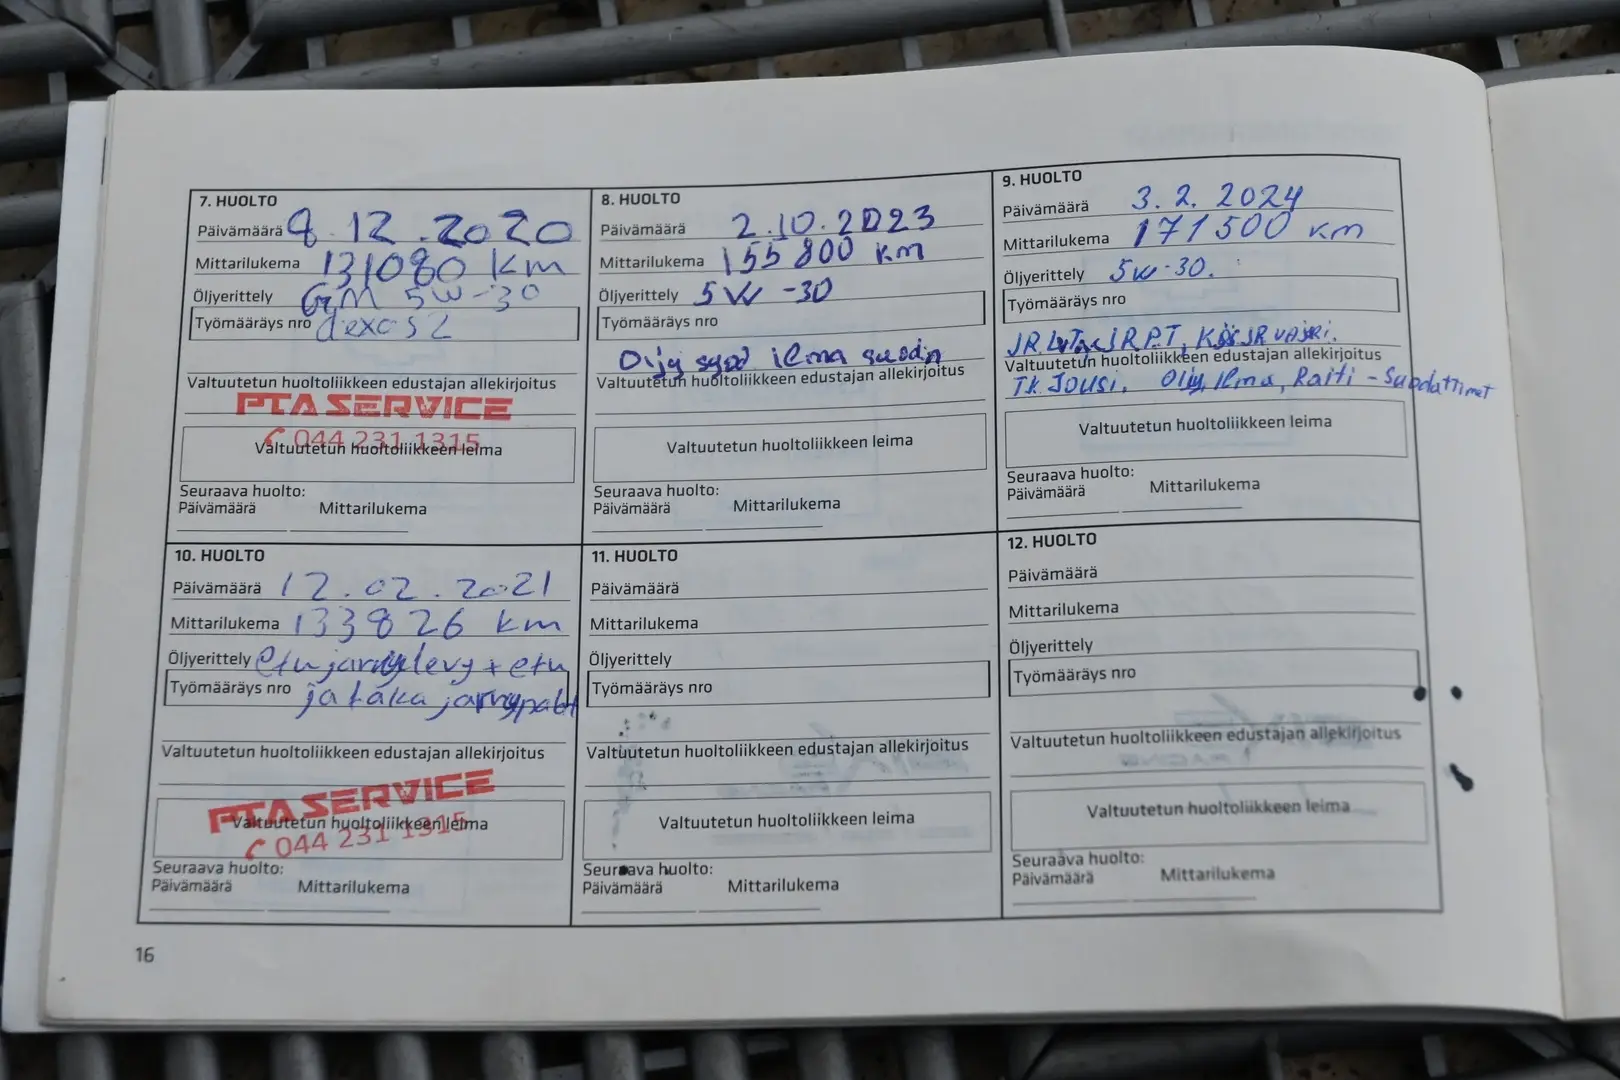 7. HUOLTO
Päivämäärä 9.12.2020
Mittarilukema 131080 km
Öljyerittely GM 5W-30
Työmääräys nro dexos 2
Valtuutetun huoltoliikkeen edustajan allekirjoitus
PTA SERVICE
044 231 1315
Valtuutetun huoltoliikkeen leima
Seuraava huolto:
Päivämäärä Mittarilukema
8. HUOLTO
Päivämäärä 2.10.2023
Mittarilukema 155 800 km
Öljyerittely 5W-30
Työmääräys nro
Valtuutetun huoltoliikkeen edustajan allekirjoitus
Valtuutetun huoltoliikkeen leima
Seuraava huolto:
Päivämäärä Mittarilukema
9. HUOLTO
Päivämäärä 3.2.2024
Mittarilukema 171500 km
Öljyerittely 5W-30.
Työmääräys nro
Valtuutetun huoltoliikkeen edustajan allekirjoitus
Tk. Jousi. Oljy, Ilma, Raiti-Suodattimet
Valtuutetun huoltoliikkeen leima
Seuraava huolto:
Päivämäärä Mittarilukema
10. HUOLTO
Päivämäärä 12.02.2021
Mittarilukema 133826 km
Öljyerittely etujarrulevy + etu
Työmääräys nro ja taka
Valtuutetun huoltoliikkeen edustajan allekirjoitus
PTA SERVICE
Valtuutetun huoltoliikkeen leima
044 231 1315
Seuraava huolto:
Päivämäärä Mittarilukema
11. HUOLTO
Päivämäärä
Mittarilukema
Öljyerittely
Työmääräys nro
Valtuutetun huoltoliikkeen edustajan allekirjoitus
Valtuutetun huoltoliikkeen leima
Seuraava huolto:
Päivämäärä Mittarilukema
12. HUOLTO
Päivämäärä
Mittarilukema
Öljyerittely
Työmääräys nro
Valtuutetun huoltoliikkeen edustajan allekirjoitus
Valtuutetun huoltoliikkeen leima
Seuraava huolto:
Päivämäärä Mittarilukema
16